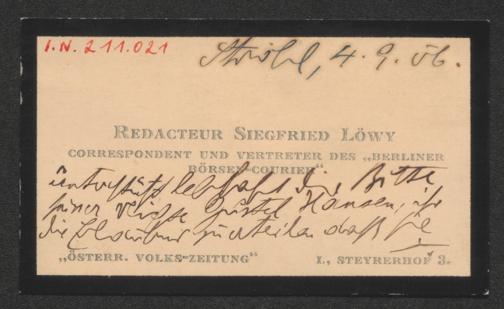 I.N. 211.021
Strobl, 4. 9. 06.
REDACTEUR SIEGFRIED LÖWY
CORRESPONDENT UND VERTRETER DES „BERLINER
BÖRSEN-COURIER“.
unterstützt lebhaft die Bitte
seiner Nichte Hansen, ihr
die Erlaubnis zu erteilen daß sie
„ÖSTERR. VOLKS-ZEITUNG“ I., STEYRERHOF 3.